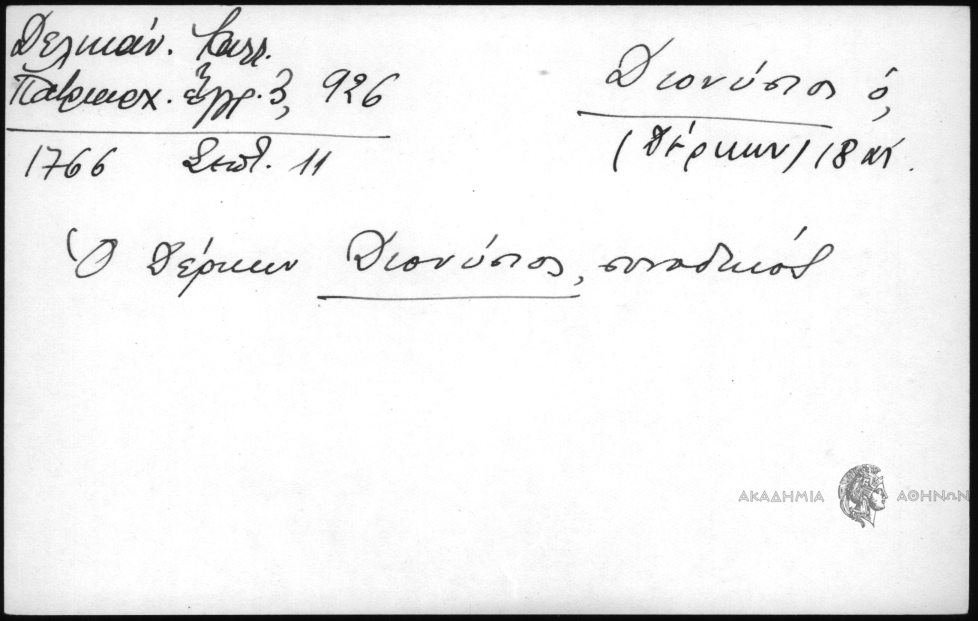 Δελικάν. Καλλ.
Πατριαρχ. ἔγγρ. 3, 926
1766 Σεπτ. 11
Διονύσιος ὁ,
(Δέρκων) 18 αἰ.
Ὁ Δέρκων Διονύσιος, συνοδικός
ΑΚΑΔΗΜΙΑ ΑΘΗΝΩΝ